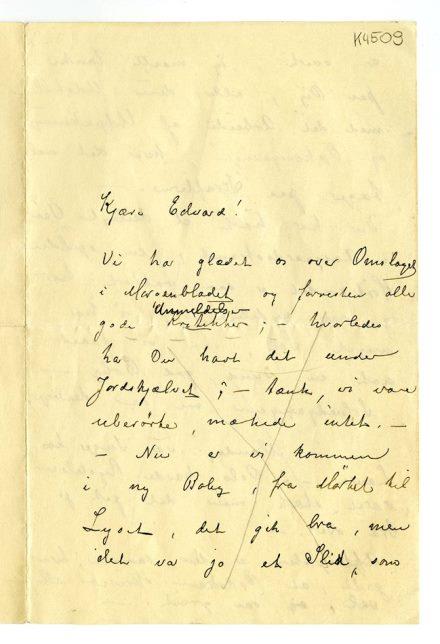 K4509
Kjære Edvard!
Vi har glædet os over Omslaget
i Morgenbladet og forresten alle
Anmeldelser
gode Kritikker; – hvorledes
har Du havt det under
Jordskjælvet; – tænk, vi vare
uberørte, mærkede intet. –
– Nu er vi kommen
i ny Bolig, fra Mørket til
Lyset, det gik bra, men
det va jo et Slid, som